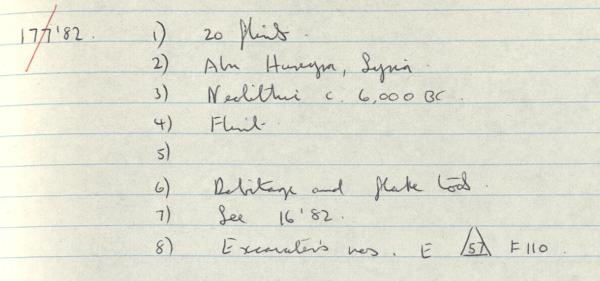 177'82. 1) 20 flints.
2) Abu Hureyra, Syria.
3) Neolithic c. 6,000 BC.
4) Flint.
5)
6) Debitage and flake tools.
7) See 16'82.
8) Excavator's nos. E 57 F 110.